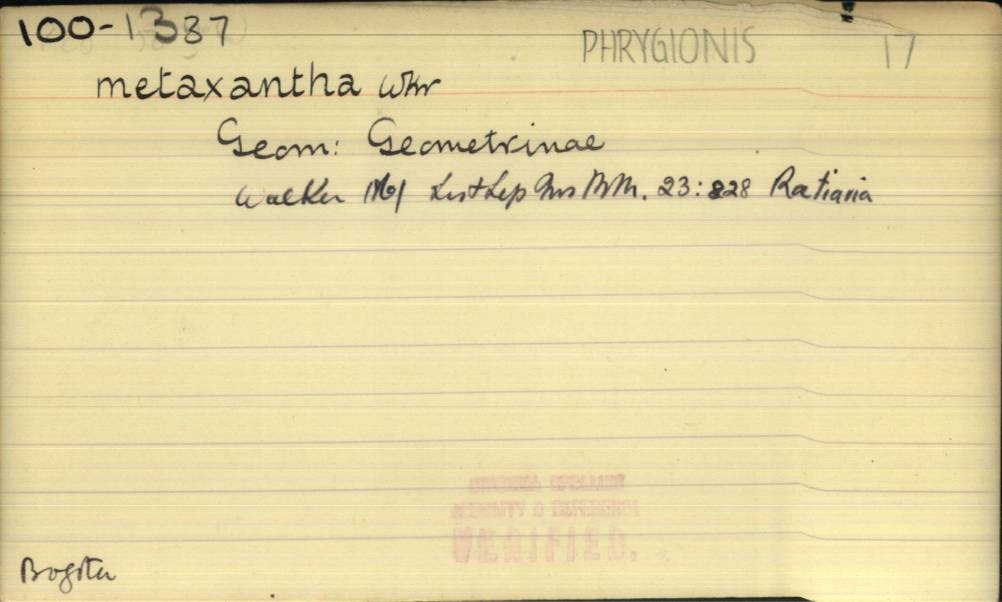 100-1337
PHRYGIONIS 17
metaxantha Wkr
Geom: Geometrinae
Walker 1861 List Lep Ins B.M. 23: 828 Ratiaria
VERIFIED.
Bogota